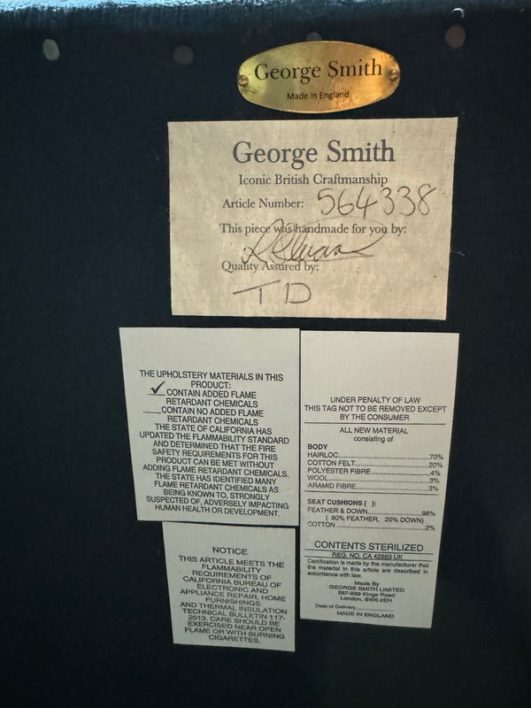 George Smith
Made in England
George Smith
Iconic British Craftmanship
Article Number: 564338
This piece was handmade for you by:
Quality Assured by:
TD
THE UPHOLSTERY MATERIALS IN THIS
PRODUCT:
✓ CONTAIN ADDED FLAME
RETARDANT CHEMICALS
___CONTAIN NO ADDED FLAME
RETARDANT CHEMICALS
THE STATE OF CALIFORNIA HAS
UPDATED THE FLAMMABILITY STANDARD
AND DETERMINED THAT THE FIRE
SAFETY REQUIREMENTS FOR THIS
PRODUCT CAN BE MET WITHOUT
ADDING FLAME RETARDANT CHEMICALS.
THE STATE HAS IDENTIFIED MANY
FLAME RETARDANT CHEMICALS AS
BEING KNOWN TO, STRONGLY
SUSPECTED OF, ADVERSELY IMPACTING
HUMAN HEALTH OR DEVELOPMENT.
NOTICE
THIS ARTICLE MEETS THE
FLAMMABILITY
REQUIREMENTS OF
CALIFORNIA BUREAU OF
ELECTRONIC AND
APPLIANCE REPAIR, HOME
FURNISHINGS
AND THERMAL INSULATION
TECHNICAL BULLETIN 117-
2013. CARE SHOULD BE
EXERCISED NEAR OPEN
FLAME OR WITH BURNING
CIGARETTES.
UNDER PENALTY OF LAW
THIS TAG NOT TO BE REMOVED EXCEPT
BY THE CONSUMER
ALL NEW MATERIAL
consisting of
BODY
HAIRLOC...70%
COTTON FELT...20%
POLYESTER FIBRE...4%
WOOL...3%
ARAMID FIBRE...3%
SEAT CUSHIONS ( ):
FEATHER & DOWN...98%
( 80% FEATHER, 20% DOWN)
COTTON...2%
CONTENTS STERILIZED
REG. NO. CA 42983 UK
Certification is made by the manufacturer that
the material in this article are described in
accordance with law.
Made By
GEORGE SMITH LIMITED
587-589 Kings Road
London, SW6 2EH
Date of Delivery
MADE IN ENGLAND